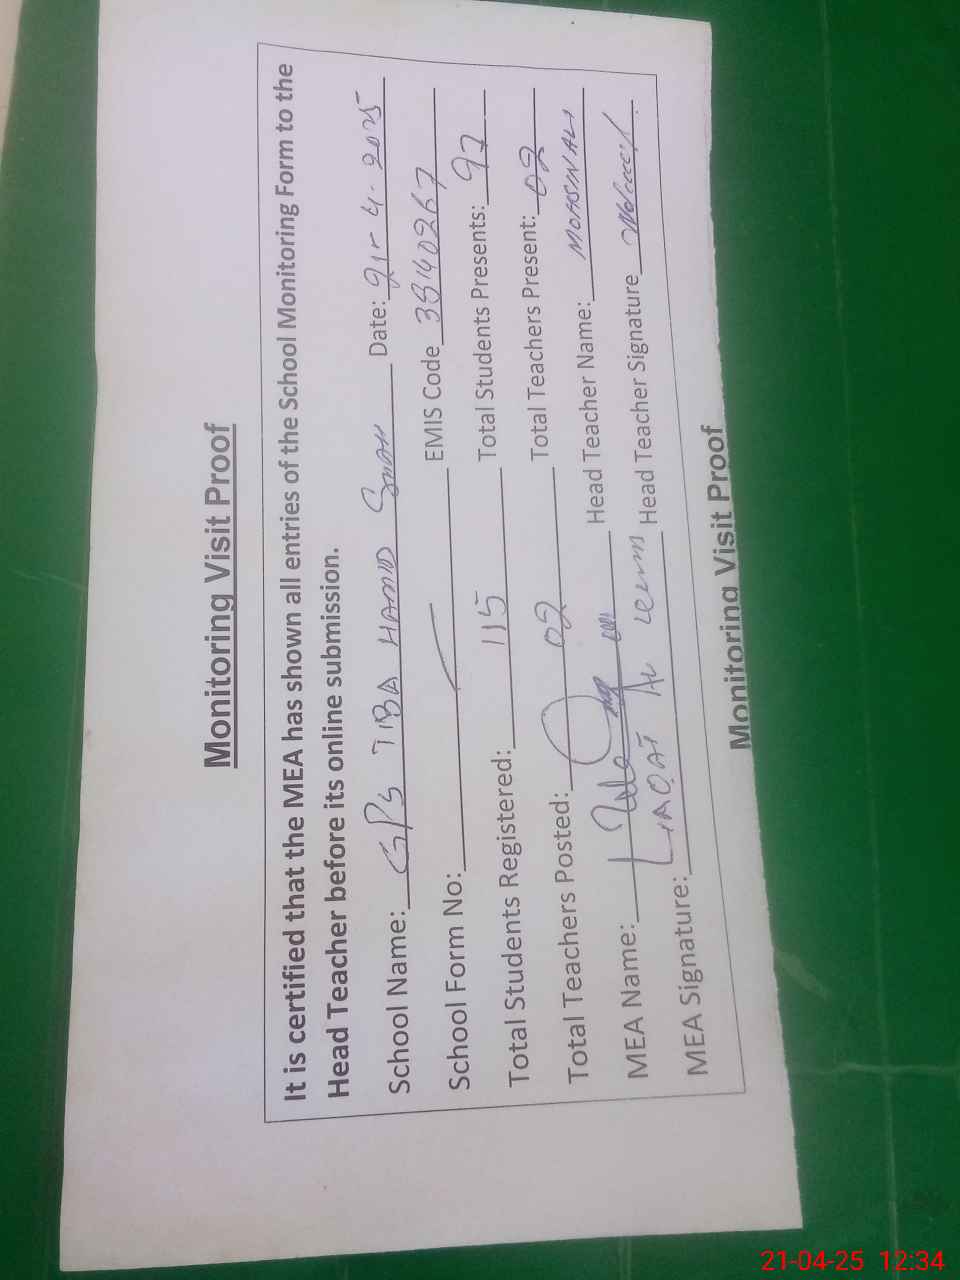 Monitoring Visit Proof
It is certified that the MEA has shown all entries of the School Monitoring Form to the
Head Teacher before its online submission.
School Name: GPS TIBA HAMID SHAH Date: 21-4-2025
School Form No: EMIS Code 38140267
Total Students Registered: 115 Total Students Presents: 97
Total Teachers Posted: 02 Total Teachers Present: 02
MEA Name: Head Teacher Name: MOHSIN ALI
MEA Signature: LIAQAT Head Teacher Signature
Monitoring Visit Proof
21-04-25 12:34